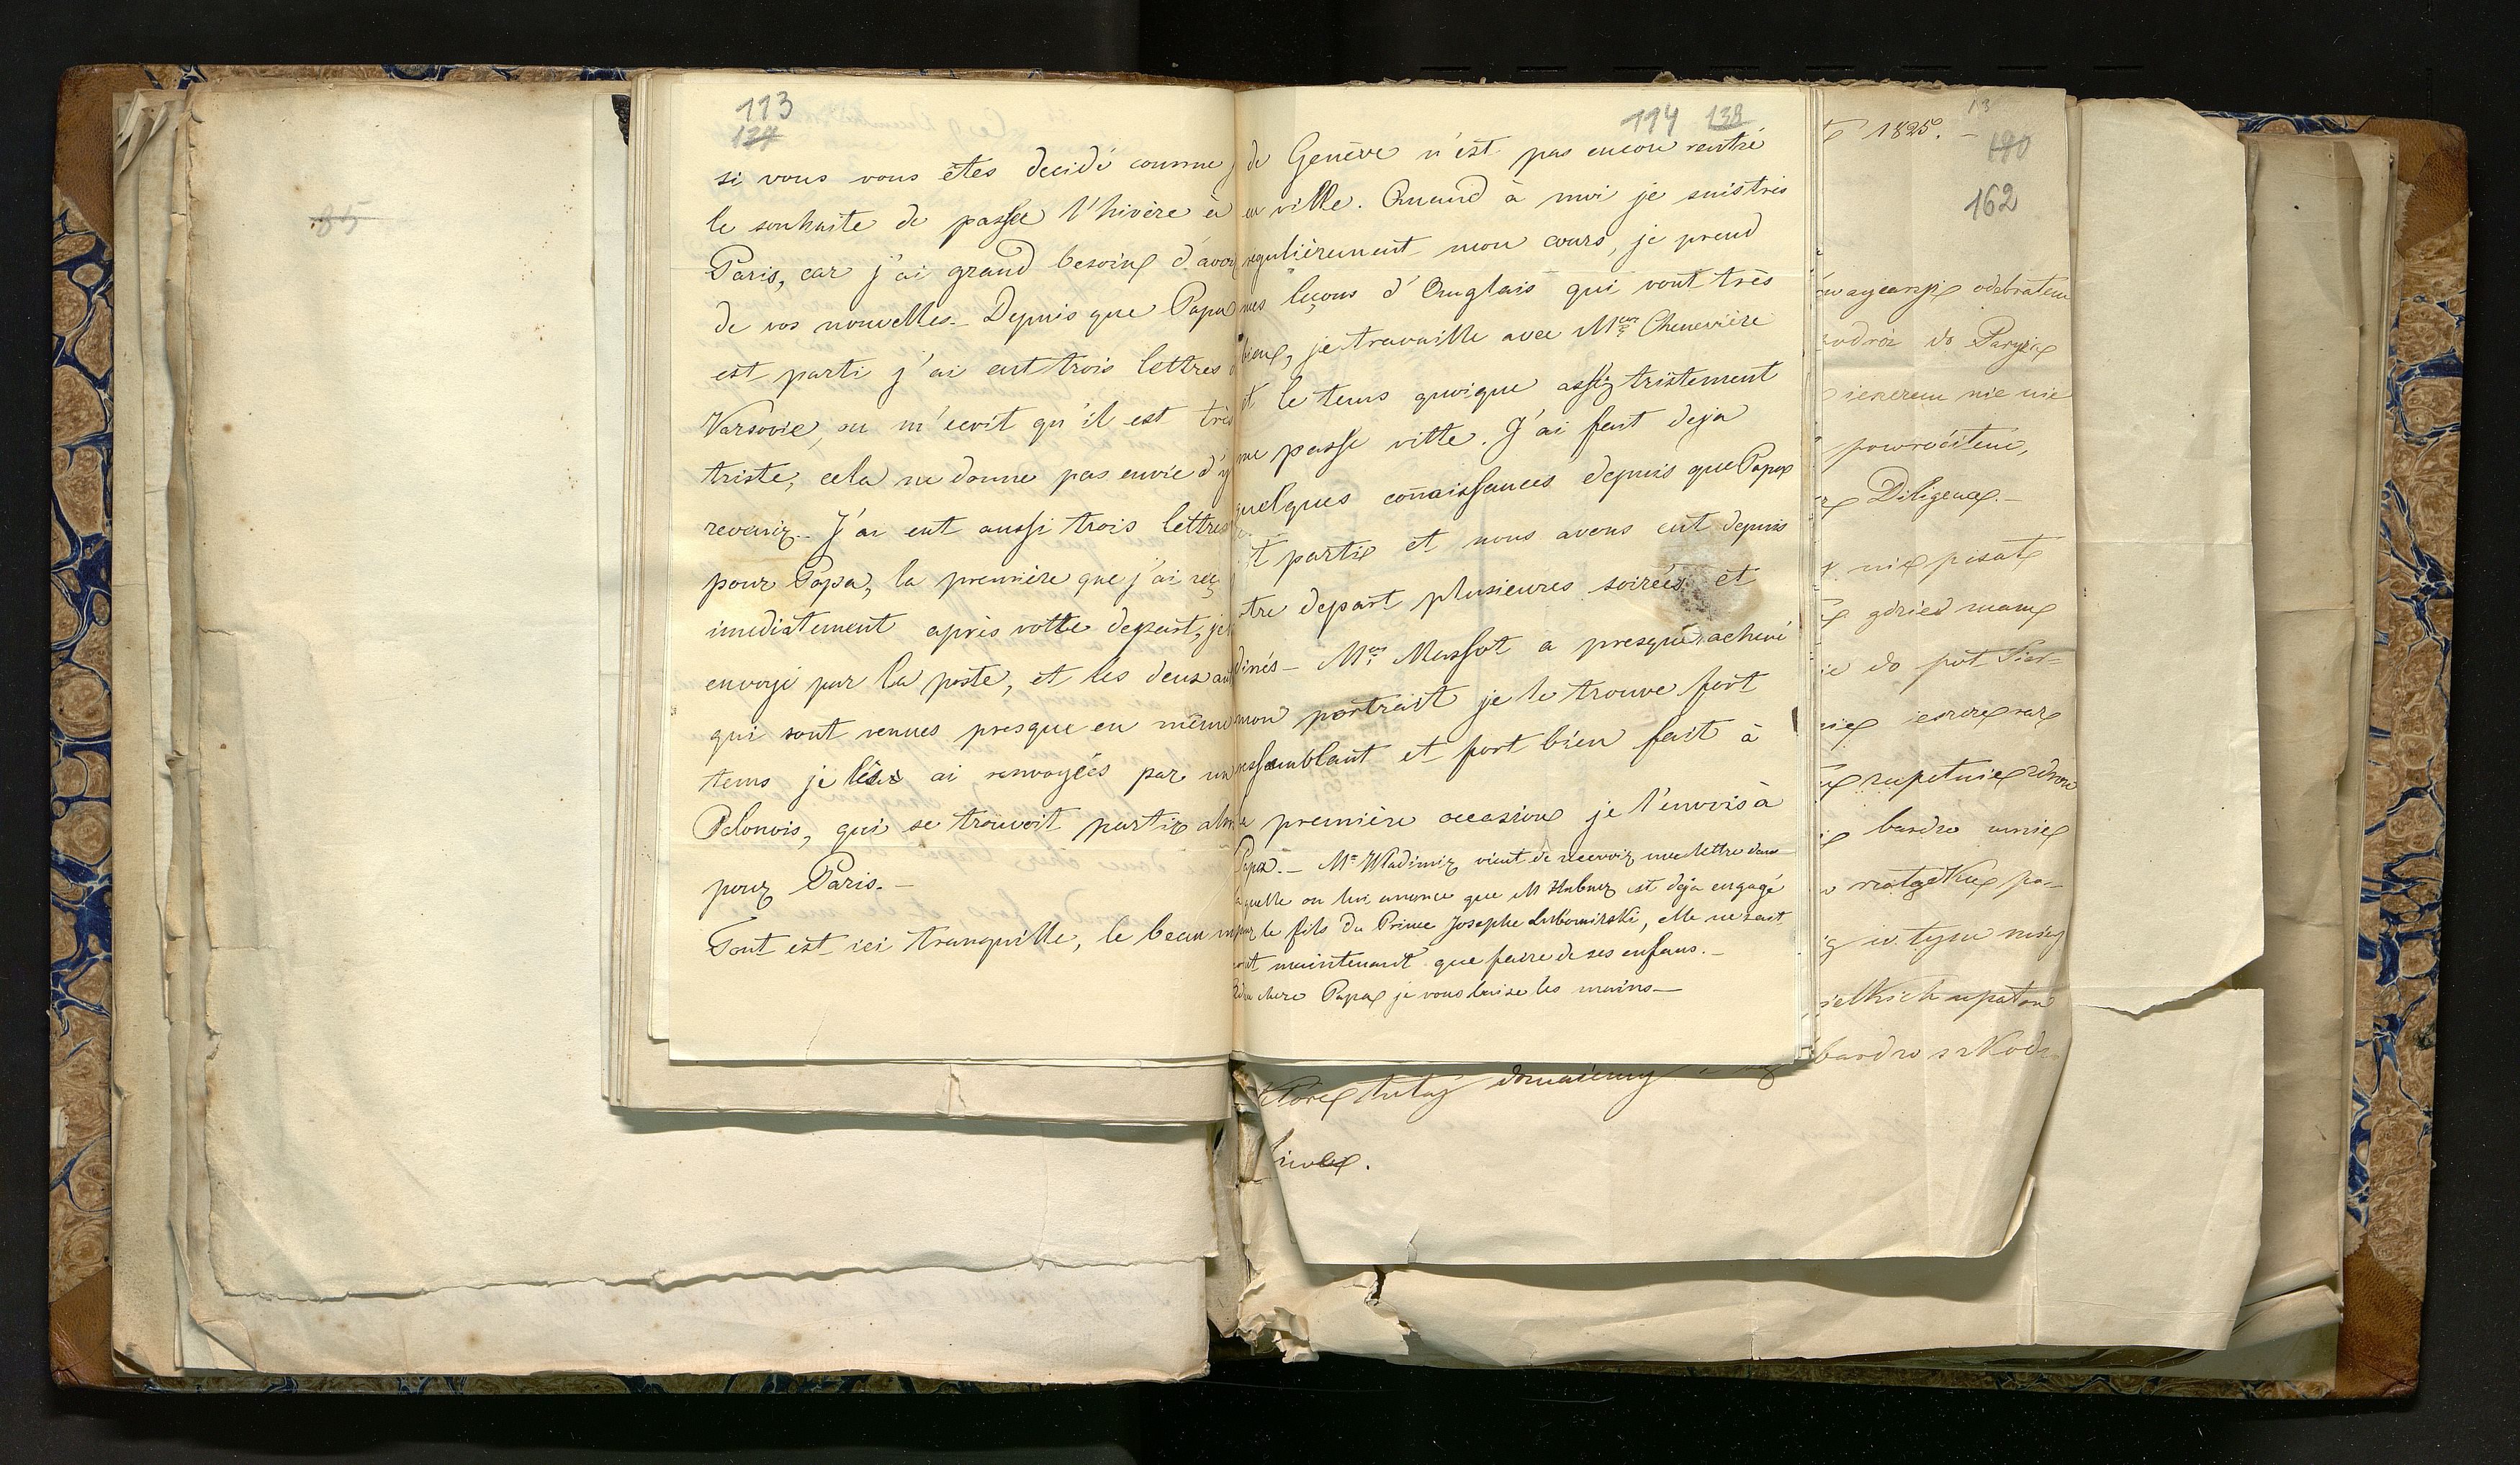 85
113
137
si vous vous êtes decidé comme j
le souhaite de passer l'hivère à
Paris, car j'ai grand besoing d'avoir
de vos nouvelles. Depuis que Papa
est parti j'ai eut trois lettres
Varsovie, on m'ecrit qu'il est très
triste, cela ne donne pas envie d'y
revenir. J'ai eut aussi trois lettres
pour Papa, la première que j'ai reç
imediatement après votte depart, je l
envoyé par la poste, et les deux aut
qui sont venues presque en même
tems je les ai renvoyées par un
Polonois, qui se trouvoit partir alor
pour Paris. —
Tout est ici tranquille, le beau m
114 138
de Genève n'est pas encore rentré
en ville. Quand à moi je suis très
regulièrement mon cours, je prend
mes leçons d'Anglais qui vont très
bien, je travaille avec Mr Chenevière
et le tems quoique assez tristement
me passe vitte. J'ai fait deja
quelques connaissances depuis que Papa
t partie et nous avons eut depuis
otre depart plusieures soirées et
dinés — Mr Massot a presque achevé
mon portrait je le trouve fort
ressemblant et fort bien fait à
la première occasion je l'envois à
Papa. — Me Wladimir vient de recevoir une lettre dans
laquelle on lui annonce que M Hubner est deja engagé
pour le fils du Prince Josephe Lubomirski, elle ne sait
maintenant que faire de ses enfans. —
Adieu chere Papa je vous baise les mains —
1825. —
180
162
odebratem
do Paryża
nie nie
powróciłem,
Diligence. —
nie pisał
gdzied mamy
do pół Sier-
zupełnie zdrow
bardzo
w tym
bardzo szkod
które tutay